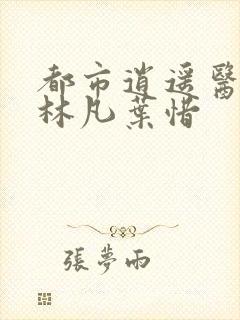 都市逍遥醫
林凡葉惜
張夢雨